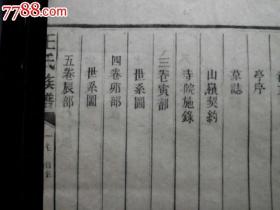 亭序
墓誌
山嶺契約
寺院施錄
三卷寅部
世系圖
四卷卯部
世系圖
五卷辰部
王氏族譜
7788.com